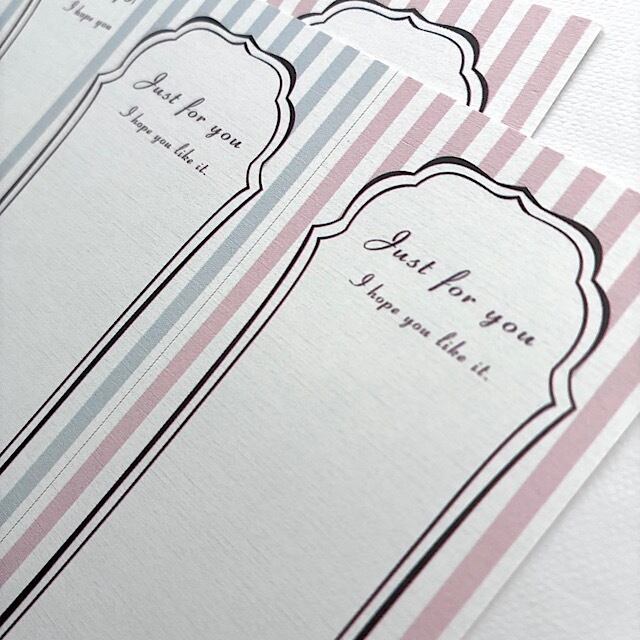 I hope you
Just for you
I hope you like it.
Just for you
I hope you like it.